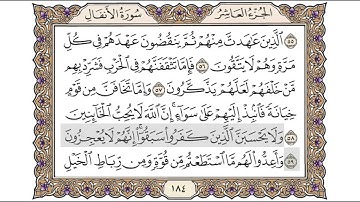 الجزء العاشر
سورة الأنفال
٥٥ الَّذِينَ عَاهَدتَّ مِنْهُمْ ثُمَّ يَنقُضُونَ عَهْدَهُمْ فِي كُلِّ
مَرَّةٍ وَهُمْ لَا يَتَّقُونَ ٥٦ فَإِمَّا تَثْقَفَنَّهُمْ فِي الْحَرْبِ فَشَرِّدْ بِهِم
مَّنْ خَلْفَهُمْ لَعَلَّهُمْ يَذَّكَّرُونَ ٥٧ وَإِمَّا تَخَافَنَّ مِن قَوْمٍ
خِيَانَةً فَانبِذْ إِلَيْهِمْ عَلَىٰ سَوَاءٍ ۚ إِنَّ اللَّهَ لَا يُحِبُّ الْخَائِنِينَ
٥٨ وَلَا يَحْسَبَنَّ الَّذِينَ كَفَرُوا سَبَقُوا ۚ إِنَّهُمْ لَا يُعْجِزُونَ
٥٩ وَأَعِدُّوا لَهُم مَّا اسْتَطَعْتُم مِّن قُوَّةٍ وَمِن رِّبَاطِ الْخَيْلِ
١٨٤